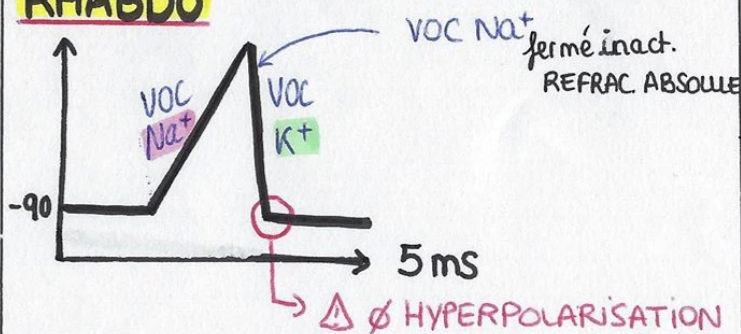 RHABDO
VOC Na⁺
fermé inact.
REFRAC. ABSOLUE
VOC
Na⁺
VOC
K⁺
-90
5 ms
⚠ Ø HYPERPOLARISATION